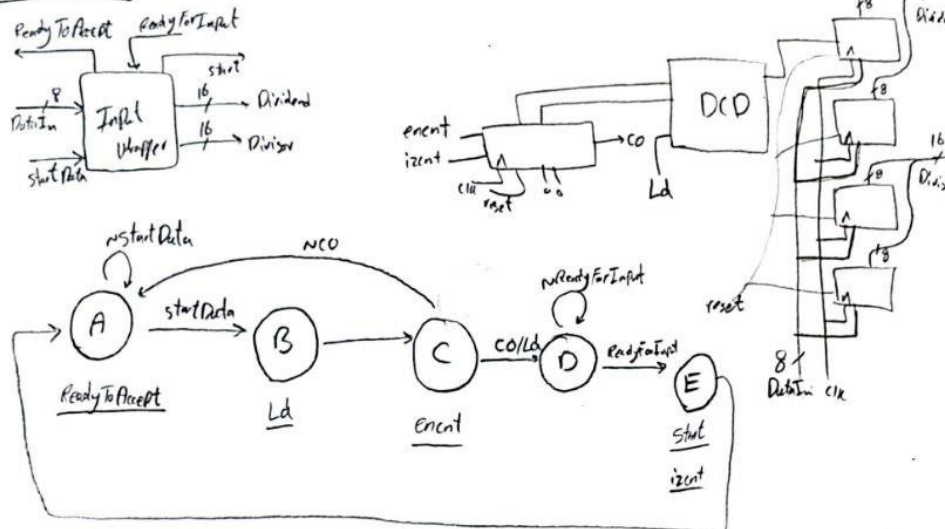 ReadyToAccept
ReadyForInput
start
8
DataIn
Input
Wrapper
16
Dividend
16
Divisor
startData
encnt
izcnt
clk
reset
0 0
CO
DCD
Ld
8
8
8
16
8
reset
8
DataIn
clk
~startData
~CO
A
startData
B
C
CO/Ld
~ReadyForInput
D
ReadyForInput
E
ReadyToAccept
Ld
encnt
start
izcnt